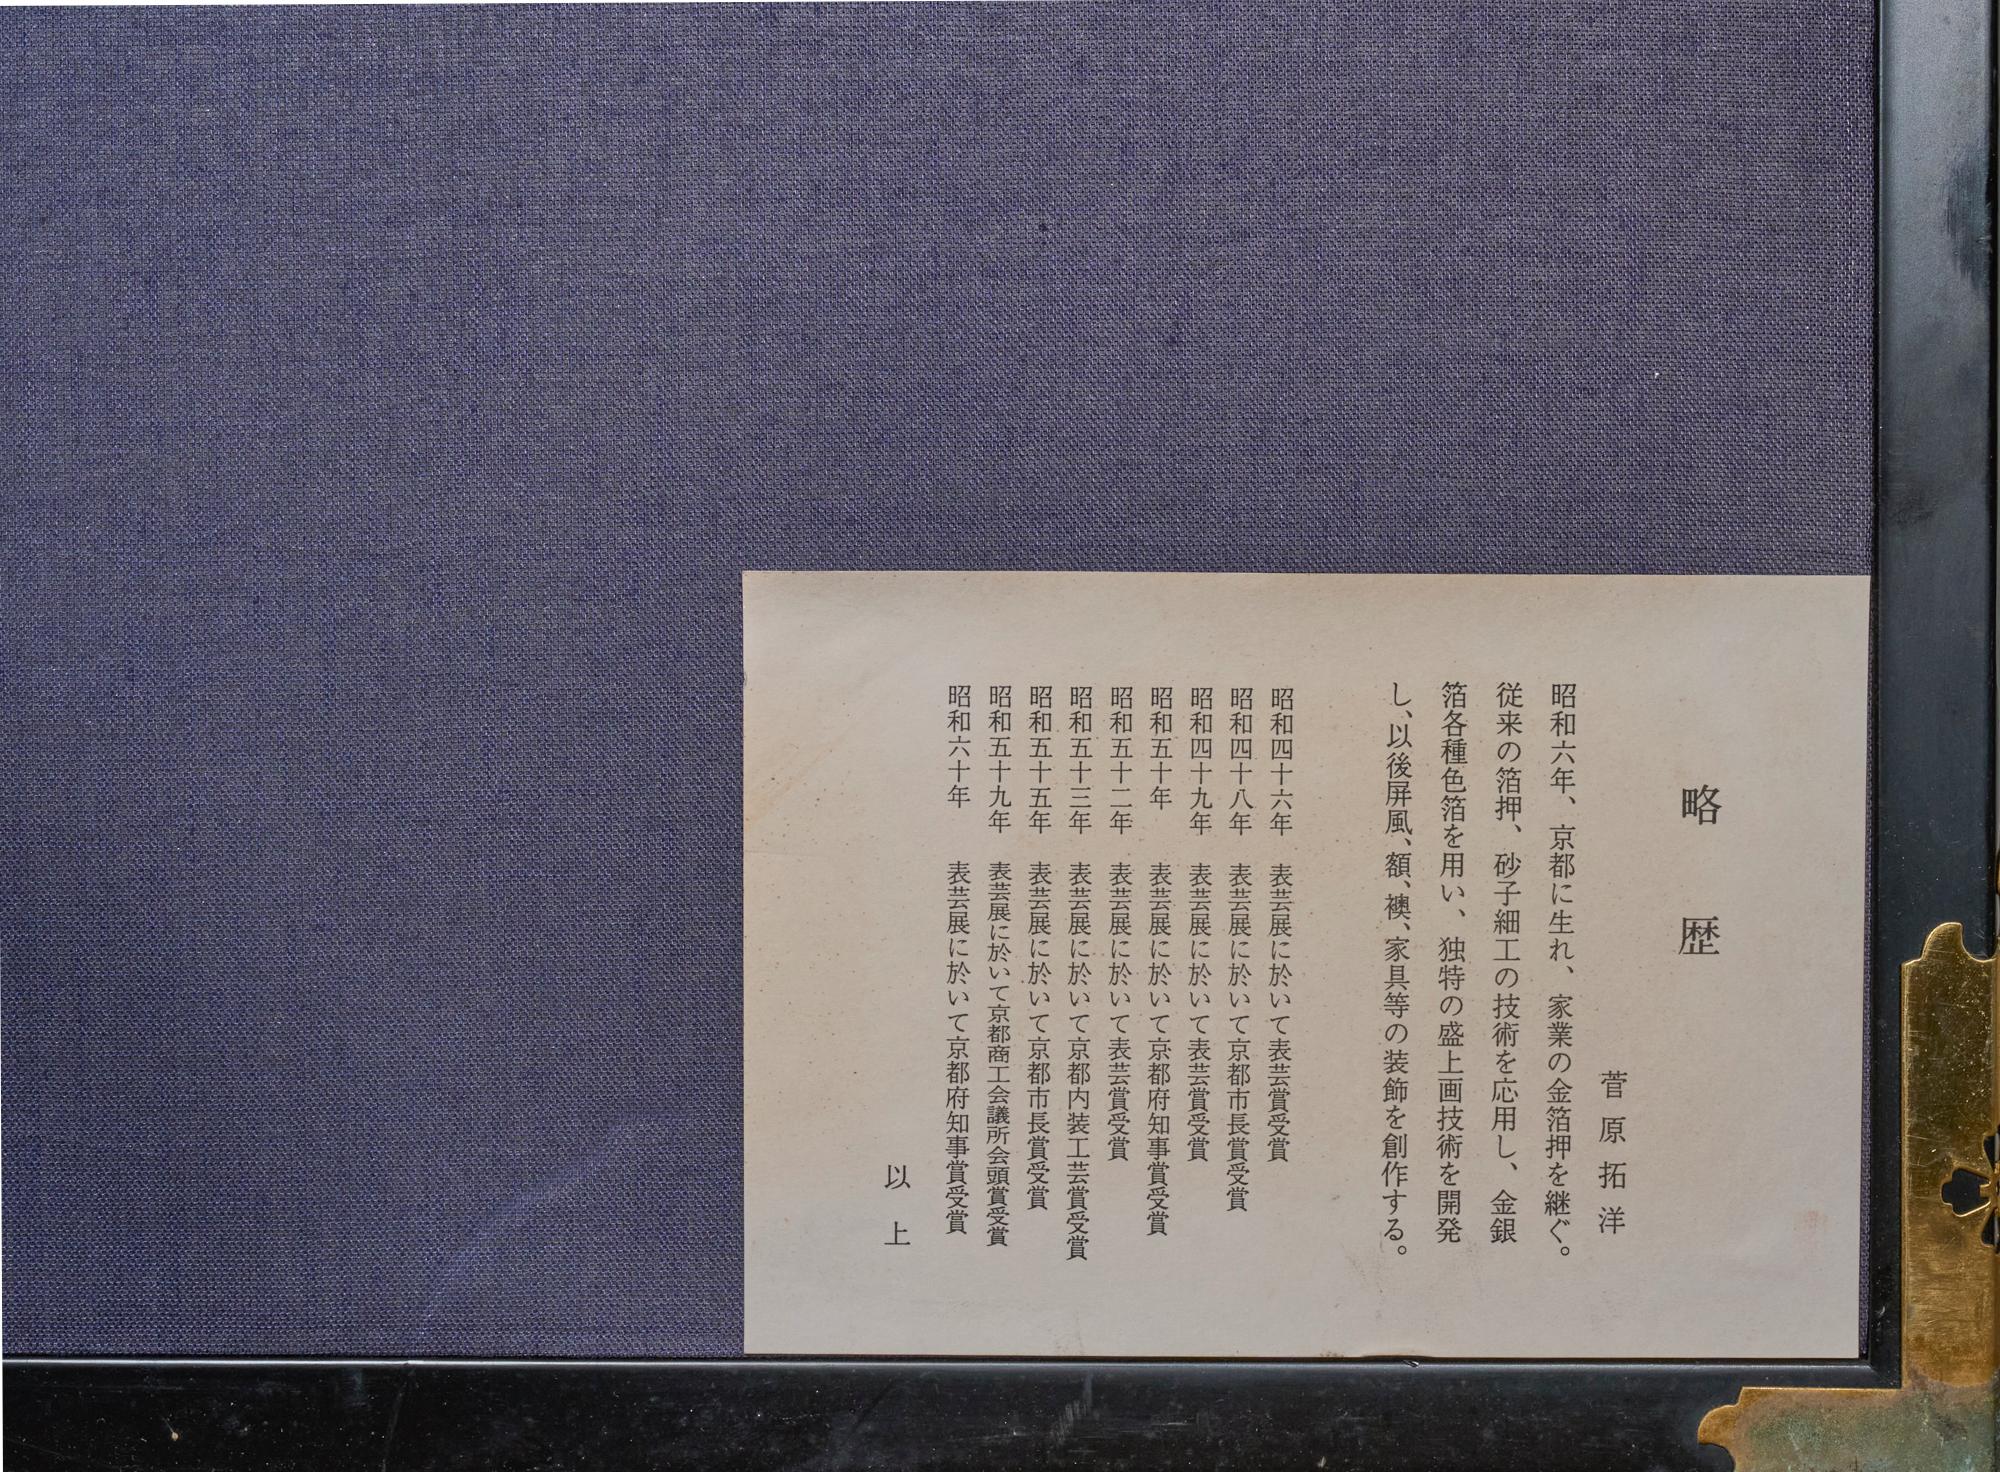 略歴
菅原拓洋
昭和六年、京都に生れ、家業の金箔押を継ぐ。
従来の箔押、砂子細工の技術を応用し、金銀
箔各種色箔を用い、独特の盛上画技術を開発
し、以後屏風、額、襖、家具等の装飾を創作する。
昭和四十六年 表芸展に於いて表芸賞受賞
昭和四十八年 表芸展に於いて京都市長賞受賞
昭和四十九年 表芸展に於いて表芸賞受賞
昭和五十年 表芸展に於いて京都府知事賞受賞
昭和五十二年 表芸展に於いて表芸賞受賞
昭和五十三年 表芸展に於いて京都内装工芸賞受賞
昭和五十五年 表芸展に於いて京都市長賞受賞
昭和五十九年 表芸展に於いて京都商工会議所会頭賞受賞
昭和六十年 表芸展に於いて京都府知事賞受賞
以上